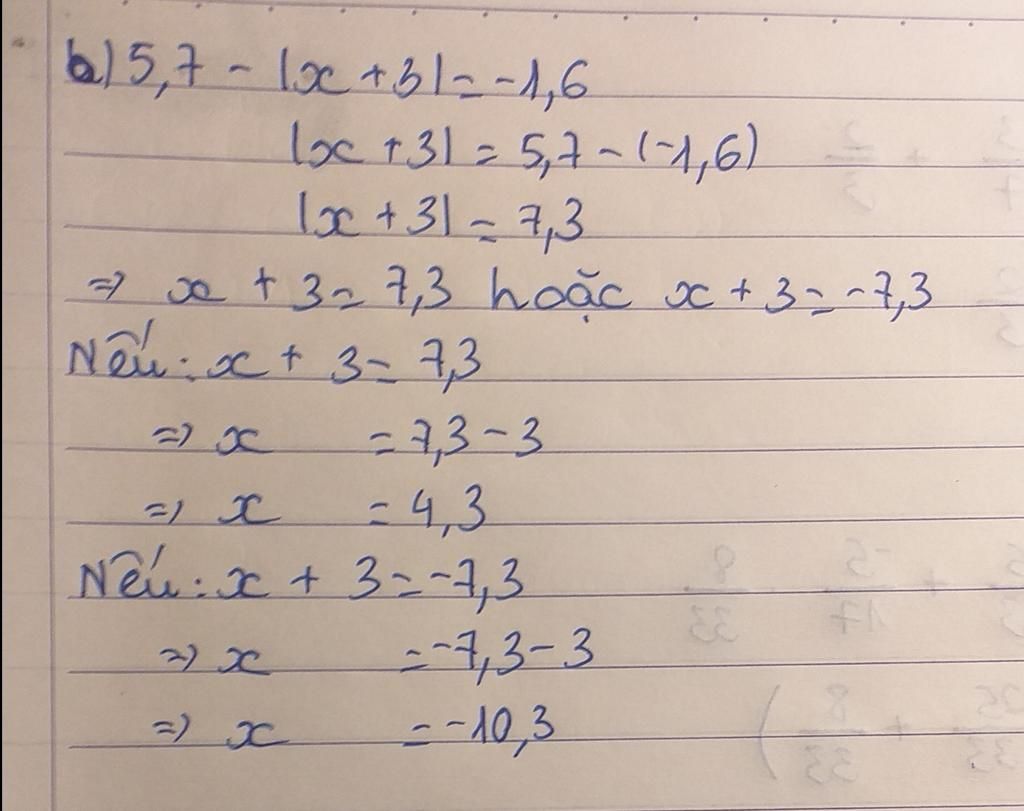 b) 5,7 - |x + 3| = -1,6
|x + 3| = 5,7 - (-1,6)
|x + 3| = 7,3
=> x + 3 = 7,3 hoặc x + 3 = -7,3
Nếu: x + 3 = 7,3
=> x = 7,3 - 3
=> x = 4,3
Nếu: x + 3 = -7,3
=> x = -7,3 - 3
=> x = -10,3